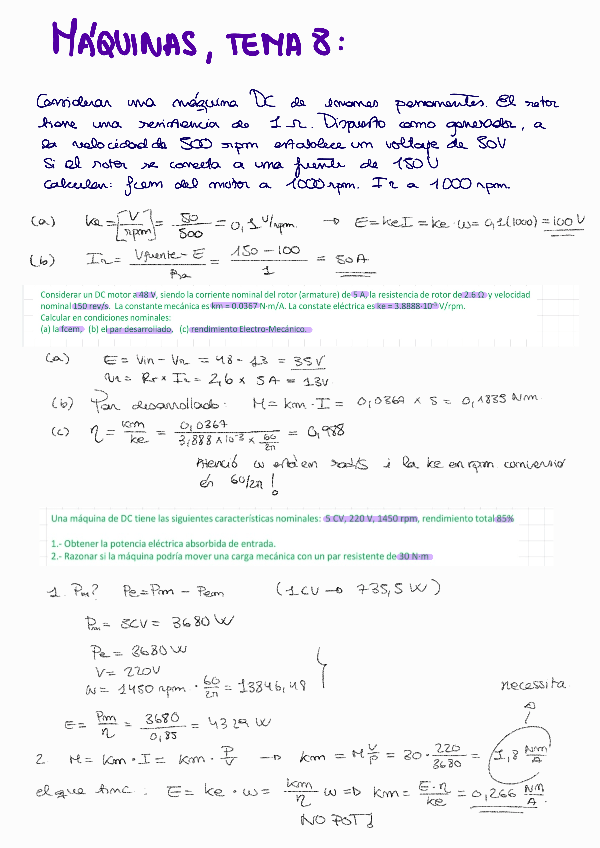 MÁQUINAS, TEMA 8:
Considerar una máquina DC de imanes permanentes. El rotor
tiene una resistencia de 1 Ω. Dispuesto como generador, a
la velocidad de 500 rpm establece un voltaje de 50V
Si el rotor se conecta a una fuente de 150V
calcular: fcem del motor a 1000rpm. Ir a 1000 rpm.
(a) Ke = [V]/[rpm] = 50/500 = 0,1 V/rpm. → E=keI = ke·ω= 0,1(1000) = 100V
(b) Ir = Vfuente - E / Ra = 150-100 / 1 = 50A
Considerar un DC motor a 48 V, siendo la corriente nominal del rotor (armature) de 5 A, la resistencia de rotor de 2.6 Ω y velocidad
nominal 150 rev/s. La constante mecánica es km = 0.0367 N·m/A. La constate eléctrica es ke = 3.8888·10⁻³ V/rpm.
Calcular en condiciones nominales:
(a) la fcem. (b) el par desarrollado. (c) rendimiento Electro-Mecánico.
(a) E = Vin - Vr = 48 - 13 = 35V
Vr = Rr × Ir = 2,6 × 5A = 13V
(b) Par desarrollado: M = km·I = 0,0367 × 5 = 0,1835 Nm
(c) η = km/ke = 0,0367 / 3,888×10⁻³ × 60/2π = 0,988
Atenció ω està en rad/s i la ke en rpm conversió
és 60/2π !
Una máquina de DC tiene las siguientes características nominales: 5 CV, 220 V, 1450 rpm, rendimiento total 85%
1.- Obtener la potencia eléctrica absorbida de entrada.
2.- Razonar si la máquina podría mover una carga mecánica con un par resistente de 30 N·m
1. Pe? Pe = Pm - Pem (1CV → 735,5 W)
Pm = 5CV = 3680 W
Pe = 3680 W
V = 220V
ω = 1450 rpm · 60/2π = 13846,48
E = Pm/η = 3680/0,85 = 4329 W
necessita
2 M = km·I = km·P/V → km = M V/P = 30·220/3680 = 1,8 Nm/A
el que tinc: E = ke·ω = km/η ω ⇒ km = E·η/ke = 0,266 Nm/A.
NO POT!